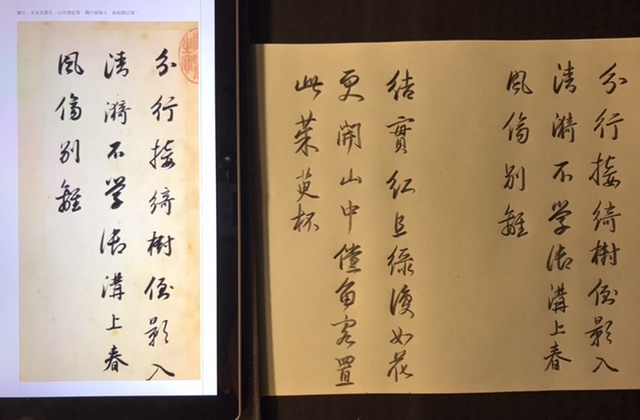 分行接綺樹倒影入
清漪不学御溝上春
風傷別離
分行接綺樹倒影入
清漪不学御溝上春
風傷別離
結實紅且綠復如花
更開山中儻留客置
此茱萸杯